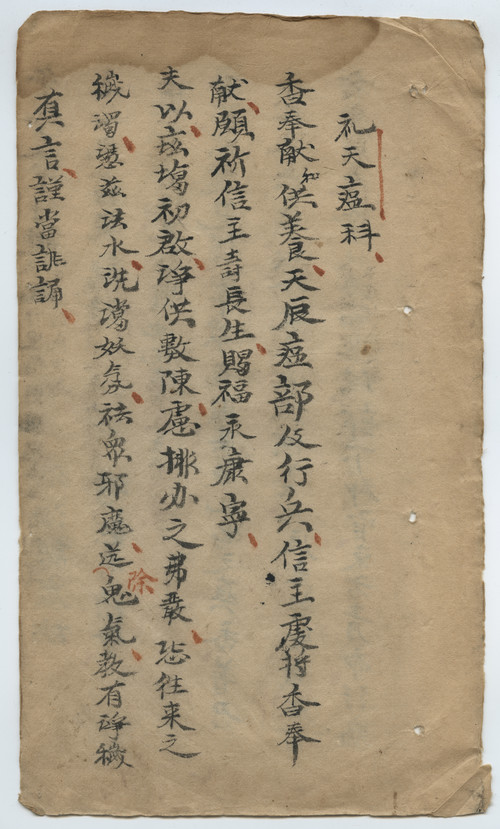 礼天瘟科
香奉献和供養天辰瘟部及行兵信主虔将香奉
献願祈信主壽長生賜福永康寧
夫以玆塲初啟净供敷陳慮排办之弗嚴恐往来之
穢濁憑兹法水洗蕩妖氛祛衆邪魔迸除鬼氣教有净穢
真言謹當誹誦